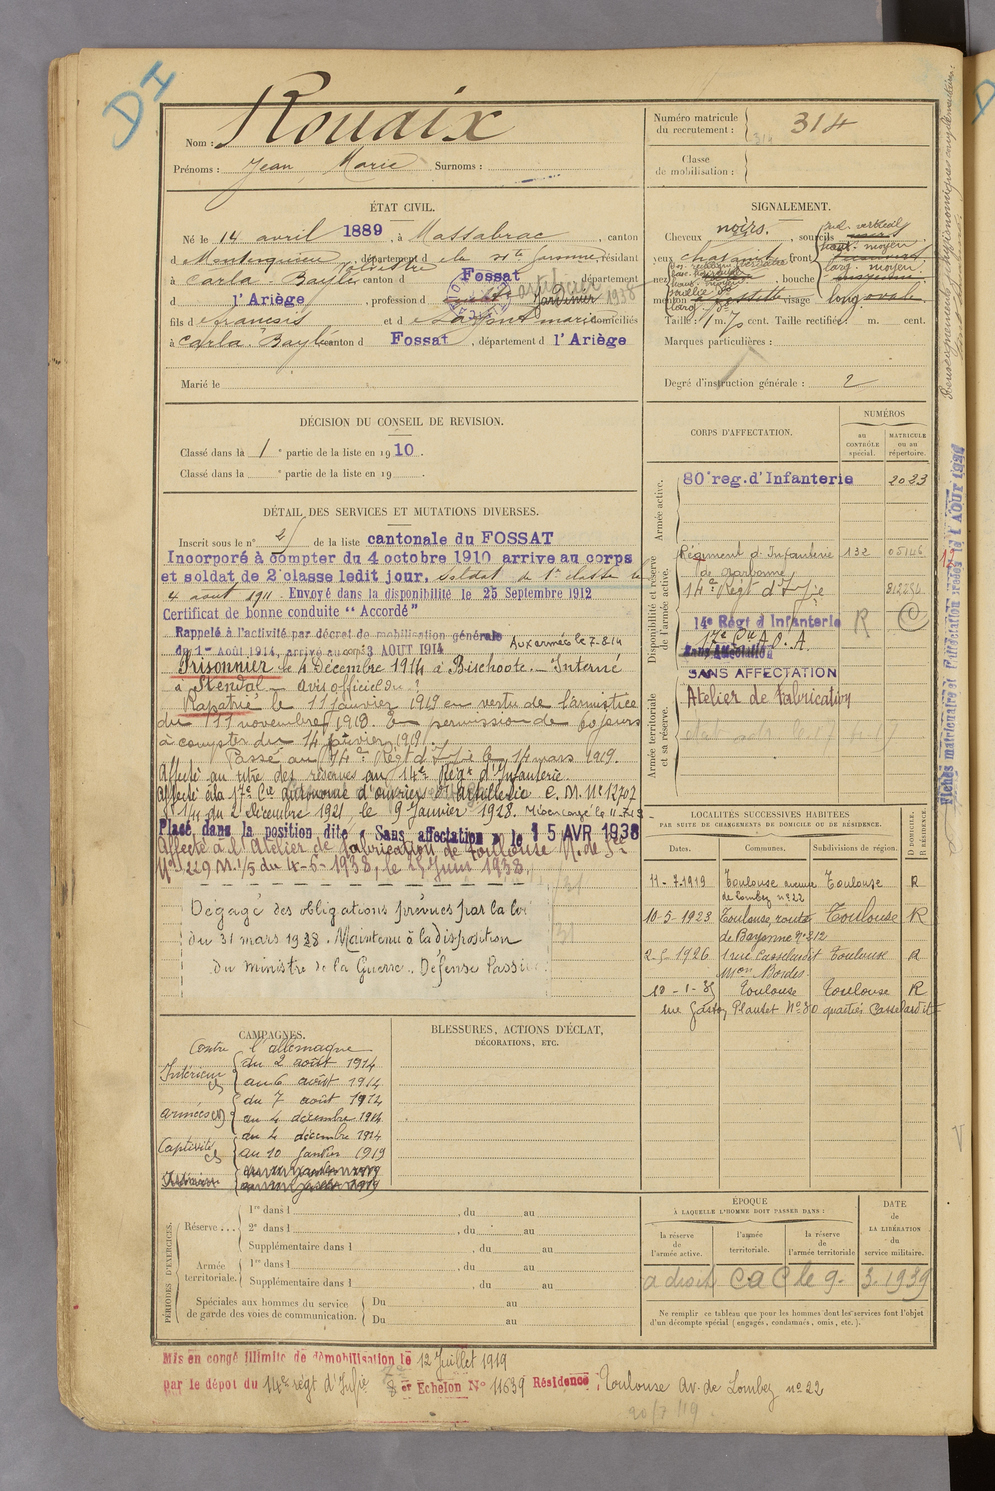 DI
Nom : Rouaix
Prénoms : Jean Marie Surnoms :
Numéro matricule du recrutement : 314
Classe de mobilisation :
ÉTAT CIVIL.
Né le 14 avril 1889, à Massabrac, canton
d Montesquieu Volvestre, départem<sup>t</sup> d e la H<sup>te</sup> Garonne, résidant
à Carla-Bayle canton d Fossat département
d l'Ariège, profession d Jardinier 1938
fils d e Francois et d e Lafont marie domiciliés
à Carla-Bayle canton d Fossat, département d l'Ariège
Marié le
SIGNALEMENT.
Cheveux noirs. sourcils
yeux chatains front
nez bouche
menton à fossette visage long ovale
Taille : 1 m. 70 cent. Taille rectifiée : m. cent.
Marques particulières :
Degré d'instruction générale : 2
DÉCISION DU CONSEIL DE REVISION.
Classé dans la 1<sup>e</sup> partie de la liste en 1910.
Classé dans la <sup>e</sup> partie de la liste en 19 .
DÉTAIL DES SERVICES ET MUTATIONS DIVERSES.
Inscrit sous le n° 21 de la liste cantonale du FOSSAT
Incorporé à compter du 4 octobre 1910 arrive au corps
et soldat de 2<sup>e</sup> classe ledit jour. Soldat de 1<sup>e</sup> classe le
4 août 1911 Envoyé dans la disponibilité le 25 Septembre 1912
Certificat de bonne conduite "Accordé"
Rappelé à l'activité par décret de mobilisation générale
du 1<sup>er</sup> Août 1914, arrivé au corps 3 AOUT 1914 Aux armées le 7-8-14
Prisonnier le 4 Décembre 1914 à Bischoote. Interné
à Stendal avis officiel du ?
Rapatrié le 11 janvier 1919 en vertu de l'armistice
du 11 novembre 1918. En permission de 60 jours
à compter du 14 janvier 1919.
Passé au 14<sup>e</sup> Régt d'Ifie le 14 mars 1919.
Affecté au titre des réserves au 14<sup>e</sup> Régt d'Infanterie.
Affecté à la 17<sup>e</sup> Cie autonome d'ouvriers d'Artillerie C.M. N° 12702
1/11 du 2 Décembre 1921, le 9 Janvier 1928.
Placé dans la position dite « Sans affectation » le 15 AVR 1938
Affecté à l'Atelier de fabrication de Toulouse
N° 229 M.1/5 du 4-6-1938, le 25 Juin 1938.
Dégagé des obligations prévues par la loi
du 31 mars 1928. Maintenu à la disposition
du Ministre de la Guerre. Défense Passive
CORPS D'AFFECTATION.
NUMÉROS
au CONTRÔLE spécial.
MATRICULE ou au répertoire.
Armée active.
80<sup>e</sup> reg. d'Infanterie 2023
Disponibilité et réserve de l'armée active.
Régiment d'Infanterie 132 05146
de Narbonne
14<sup>e</sup> Régt d'Ifie
14e Régt d'Infanterie R C
17<sup>e</sup> Cie A.O.A.
Sans affectation
SANS AFFECTATION
Armée territoriale et sa réserve.
Atelier de fabrication
LOCALITÉS SUCCESSIVES HABITÉES
PAR SUITE DE CHANGEMENTS DE DOMICILE OU DE RÉSIDENCE.
Dates. Communes. Subdivisions de région. D DOMICILE. R RÉSIDENCE.
11-7-1919 Toulouse avenue de Lombez n° 22 Toulouse R
10-5-1923 Toulouse, route de Bayonne n° 212 Toulouse R
2-5-1926 1 rue Casselardit Mon Bordes Toulouse R
10-1-35 Toulouse Toulouse R
rue Gaston Planlet N° 30 quartier Casselardit
CAMPAGNES.
Contre l'allemagne
Intérieur CS du 2 août 1914
au 6 août 1914
armées du 7 août 1914
au 4 décembre 1914
Captivité CS du 4 décembre 1914
au 10 Janvier 1919
BLESSURES, ACTIONS D'ÉCLAT, DÉCORATIONS, ETC.
PÉRIODES D'EXERCICES.
Réserve ... 1<sup>re</sup> dans l , du au
2<sup>e</sup> dans l , du au
Supplémentaire dans l , du au
Armée territoriale. 1<sup>re</sup> dans l , du au
Supplémentaire dans l , du au
Spéciales aux hommes du service de garde des voies de communication. Du au
Du au
ÉPOQUE
À LAQUELLE L'HOMME DOIT PASSER DANS :
la réserve de l'armée active. l'armée territoriale. la réserve de l'armée territoriale
DATE de LA LIBÉRATION du service militaire.
a droit CaC le 9-3-1939
Ne remplir ce tableau que pour les hommes dont les services font l'objet
d'un décompte spécial (engagés, condamnés, omis, etc.).
Mis en congé illimité de démobilisation le 12 Juillet 1919
par le dépôt du 14<sup>e</sup> régt d'Infie 8 er Echelon N° 11639 Résidence : Toulouse Av. de Lombez n° 22
20/7/19